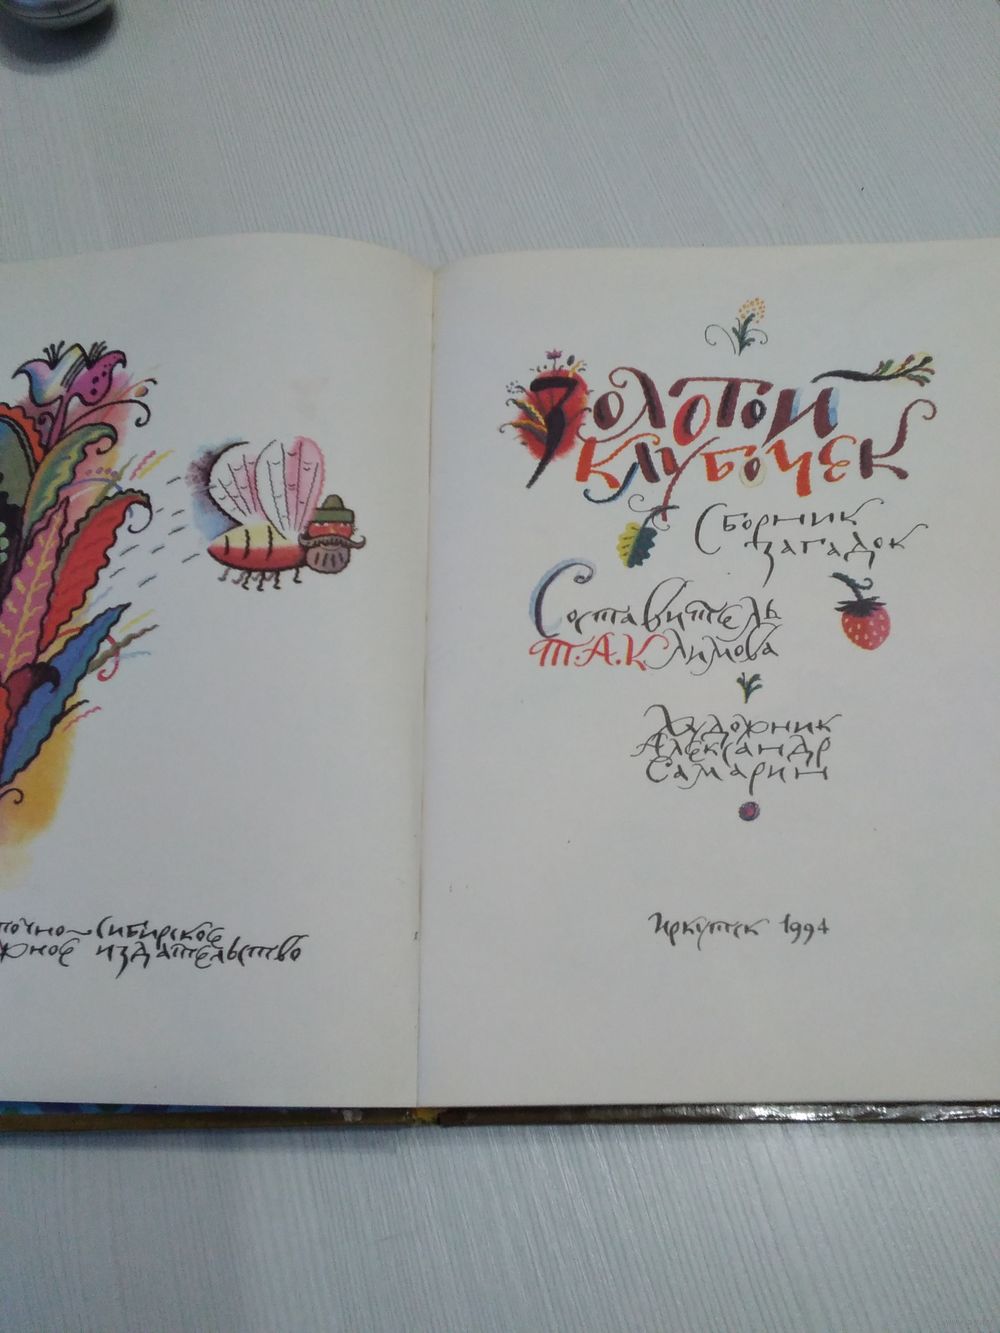 точно-Сибирское
жное издательство
Золотой
клубочек
Сборник
загадок
Составитель
Т.А.Климова
Художник
Александр
Самарин
Иркутск 1994